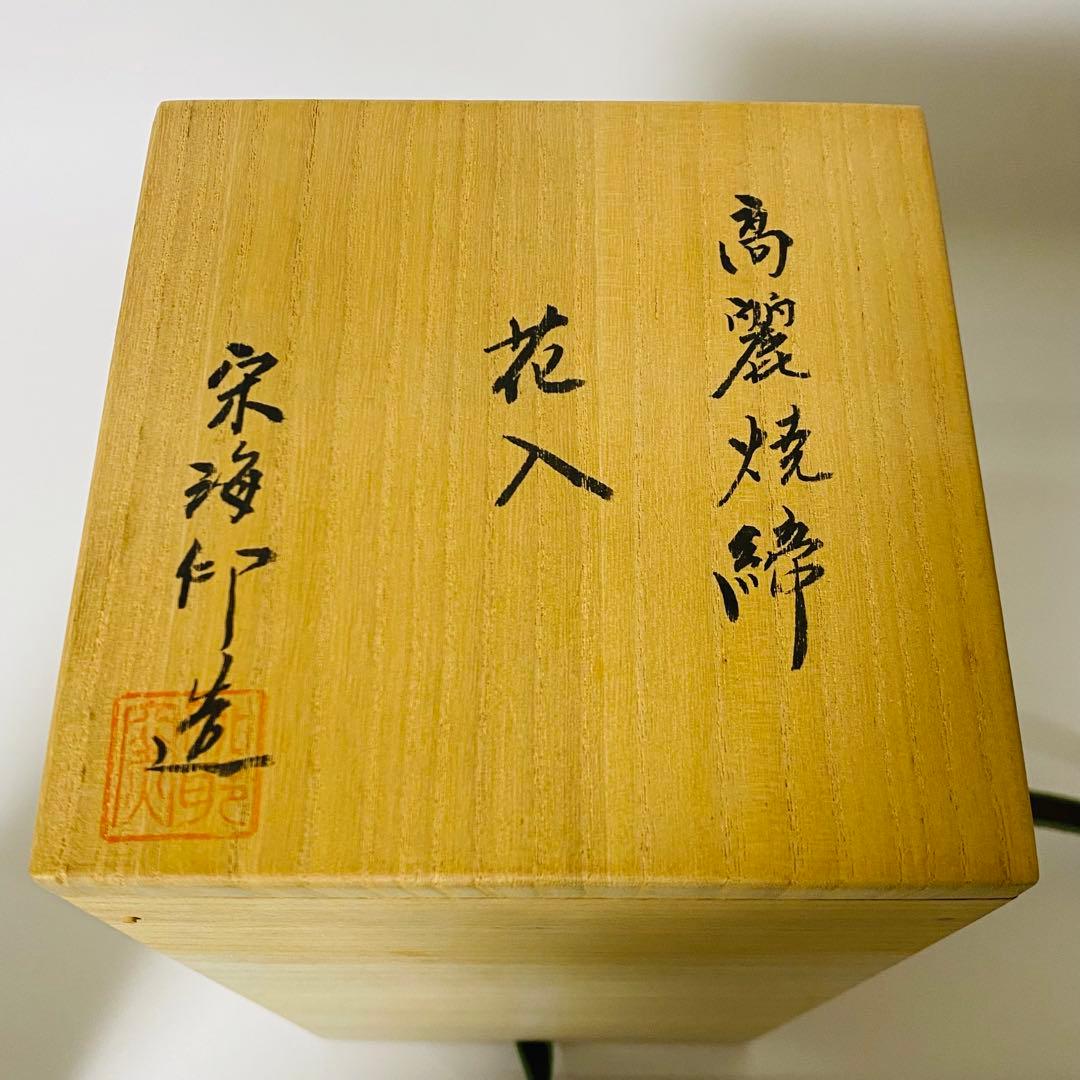 高麗焼締
花入
宋海印造